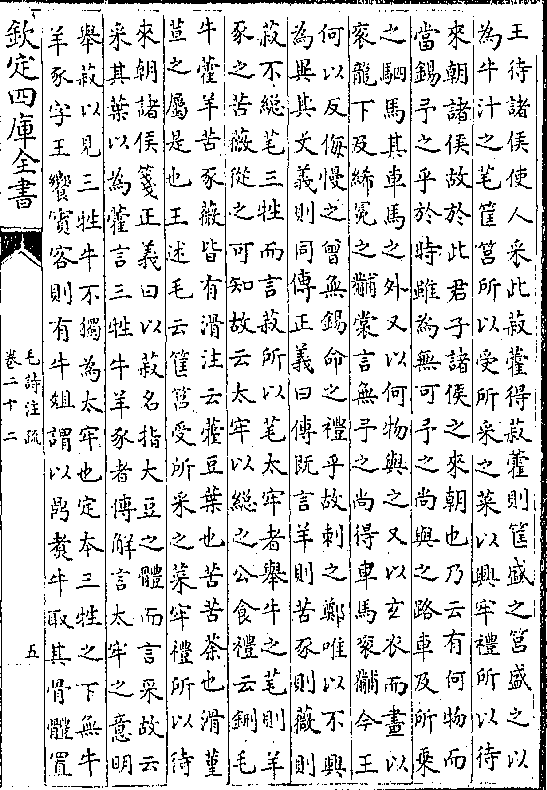 王待諸侯使人采此菽藿得菽藿則筐盛之筥盛之以
為牛汁之芼筐筥所以受所采之菜以興牢禮所以待
來朝諸侯故於此君子諸侯之來朝也乃云有何物而
當錫予之乎於時雖為無可予之尚與之路車及所乗
之駟馬其車馬之外又以何物與之又以玄衣而畫以
衮龍下及絺冕之黼裳言無予之尚得車馬衮黼今王
何以反侮慢之曽無錫命之禮乎故刺之鄭唯以不興
為異其文義則同傳正義曰傳既言羊則苦豕則薇則
菽不總芼三牲而言菽所以芼太牢者舉牛之芼則羊
豕之苦薇從之可知故云太牢以總之公食禮云鉶毛
牛藿羊苦豕薇皆有滑注云藿豆葉也苦苦荼也滑堇
荁之屬是也王述毛云筐筥受所采之菜牢禮所以待
來朝諸侯箋正義曰以菽名指大豆之體而言采故云
采其葉以為藿言三牲牛羊豕者傳解言太牢之意明
舉菽以見三牲牛不獨為太牢也定本三牲之下無牛
羊豕字王饗賔客則有牛俎謂以鼎煑牛取其骨體置
欽定四庫全書
毛詩注疏
卷二十二
五